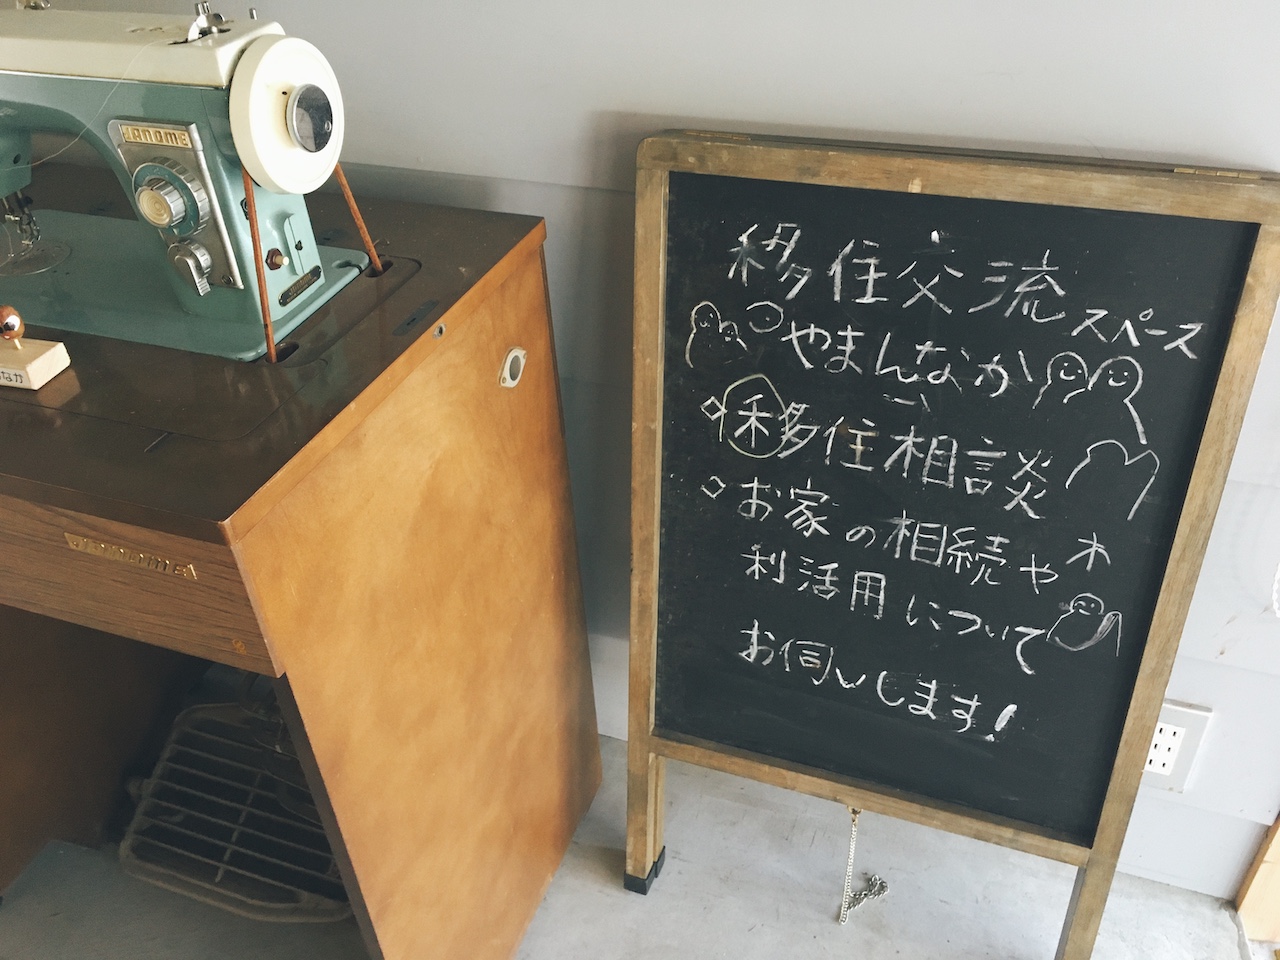 JANOME
なか
JANOME
移住交流スペース
やまんなか
移住相談
お家の相続や
利活用について
お伺いします!